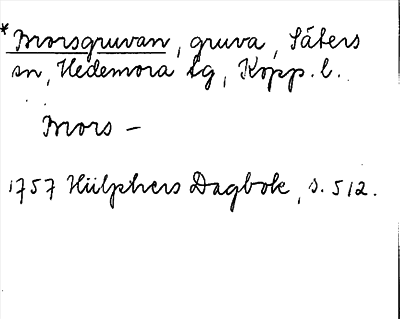 *Morsgruvan, gruva, Säters
sn, Hedemora tg, Kopp. l.
Mors –
1757 Hülphers Dagbok, s. 512.